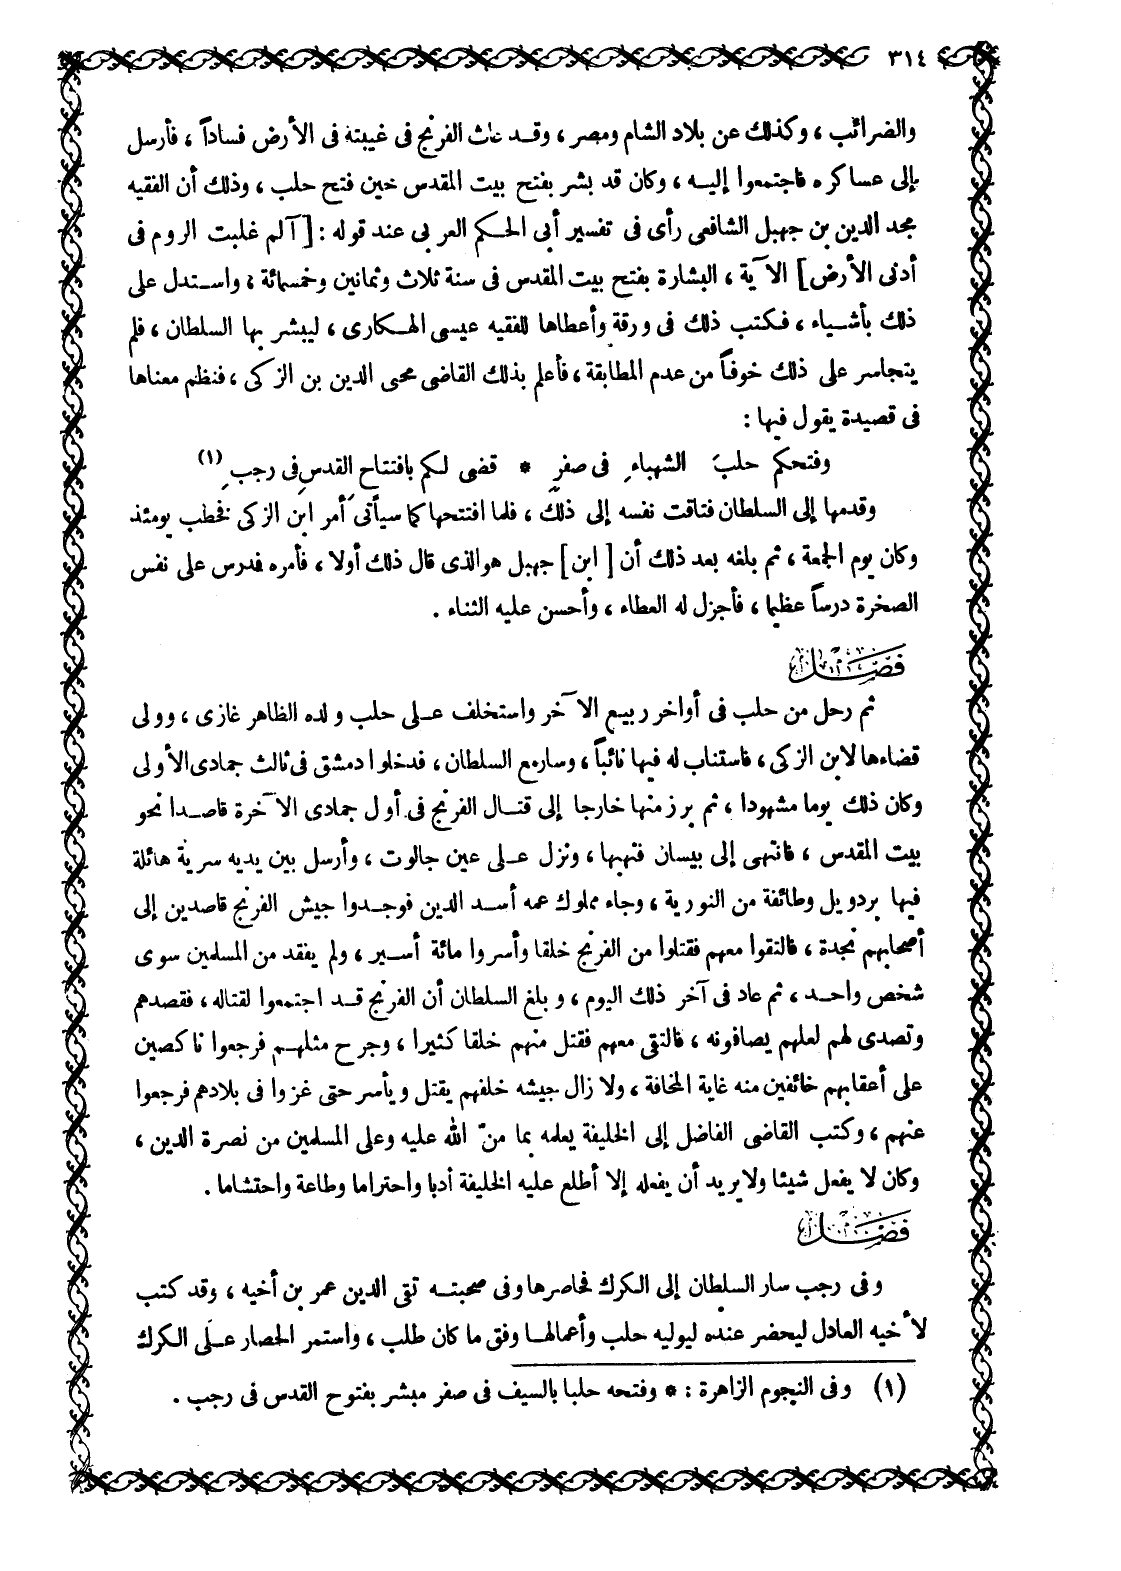 ٣١٤
والضرائب ، وكذلك عن بلاد الشام ومصر ، وقد عاث الفرنج فى غيبته فى الأرض فساداً ، فأرسل
إلى عساكره فاجتمعوا إليه ، وكان قد بشر بفتح بيت المقدس حين فتح حلب ، وذلك أن الفقيه
مجد الدين بن جهبل الشافعى رأى فى تفسير أبى الحكم العربى عند قوله : [ آلم غلبت الروم فى
أدنى الأرض ] الآية ، البشارة بفتح بيت المقدس فى سنة ثلاث وثمانين وخمسمائة ، واستدل على
ذلك بأشياء ، فكتب ذلك فى ورقة وأعطاها للفقيه عيسى الهكارى ، ليبشر بها السلطان ، فلم
يتجاسر على ذلك خوفاً من عدم المطابقة ، فأعلم بذلك القاضى محيى الدين بن الزكى ، فنظم معناها
فى قصيدة يقول فيها :
وفتحكم حلبَ الشهباءِ فى صفرٍ * قضى لكم بافتتاح القدسِ فى رجبِ (١)
وقدمها إلى السلطان فتاقت نفسه إلى ذلك ، فلما افتتحها كما سيأتى أمر ابن الزكى فخطب يومئذ
وكان يوم الجمعة ، ثم بلغه بعد ذلك أن [ ابن ] جهبل هو الذى قال ذلك أولا ، فأمره فدرس على نفس
الصخرة درساً عظيما ، فأجزل له العطاء ، وأحسن عليه الثناء .
فصل
ثم رحل من حلب فى أواخر ربيع الآخر واستخلف على حلب ولده الظاهر غازى ، وولى
قضاءها لابن الزكى ، فاستناب له فيها نائباً ، وسار مع السلطان ، فدخلوا دمشق فى ثالث جمادى الأولى
وكان ذلك يوما مشهودا ، ثم برز منها خارجا إلى قتال الفرنج فى أول جمادى الآخرة قاصدا نحو
بيت المقدس ، فانتهى إلى بيسان فنهبها ، ونزل على عين جالوت ، وأرسل بين يديه سرية هائلة
فيها بردويل وطائفة من النورية ، وجاء مملوك عمه أسد الدين فوجدوا جيش الفرنج قاصدين إلى
أصحابهم نجدة ، فالتقوا معهم فقتلوا من الفرنج خلقا وأسروا مائة أسير ، ولم يفقد من المسلمين سوى
شخص واحد ، ثم عاد فى آخر ذلك اليوم ، وبلغ السلطان أن الفرنج قد اجتمعوا لقتاله ، فقصدهم
وتصدى لهم لعلهم يصافونه ، فالتقى معهم فقتل منهم خلقا كثيرا ، وجرح مثلهم فرجعوا ناكصين
على أعقابهم خائفين منه غاية المخافة ، ولا زال جيشه خلفهم يقتل ويأسر حتى غزوا فى بلادهم فرجعوا
عنهم ، وكتب القاضى الفاضل إلى الخليفة يعلمه بما منّ الله عليه وعلى المسلمين من نصرة الدين ،
وكان لا يفعل شيئا ولا يريد أن يفعله إلا أطلع عليه الخليفة أدبا واحتراما وطاعة واحتشاما .
فصل
وفى رجب سار السلطان إلى الكرك فحاصرها وفى صحبته تقى الدين عمر بن أخيه ، وقد كتب
لأخيه العادل ليحضر عنده ليوليه حلب وأعمالها وفق ما كان طلب ، واستمر الحصار على الكرك
(١) وفى النجوم الزاهرة : * وفتحه حلبا بالسيف فى صفر مبشر بفتوح القدس فى رجب .